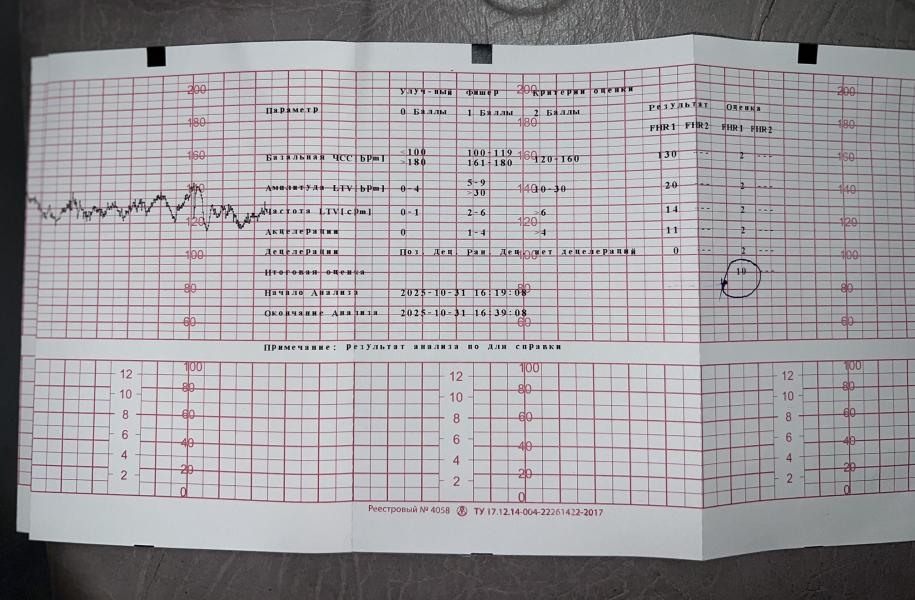 Улуч-ный Фишер Критерии оценки
Параметр 0 Баллы 1 Баллы 2 Баллы Результат Оценка
FHR1 FHR2 FHR1 FHR2
Базальная ЧСС[bpm] <100 100-119 120-160 130 --- 2 ---
>180 161-180
Амплитуда LTV[bpm] 0-4 5-9 10-30 20 --- 2 ---
>30
Частота LTV[cpm] 0-1 2-6 >6 14 --- 2 ---
Акцелерации 0 1-4 >4 11 --- 2 ---
Децелерации Поз. Дец. Ран. Дец. нет децелераций 0 --- 2 ---
Итоговая оценка 10 ---
Начало Анализа 2025-10-31 16:19:08
Окончание Анализа 2025-10-31 16:39:08
Примечание: Результат анализа по для справки
200 200 200
180 180 180
160 160 160
140 140 140
120 120 120
100 100 100
80 80 80
60 60 60
12 100 12 100 12 100
10 80 10 80 10 80
8 60 8 60 8 60
6 40 6 40 6 40
4 20 4 20 4 20
2 0 2 0 2 0
Реестровый № 4058 ТУ 17.12.14-004-22261422-2017